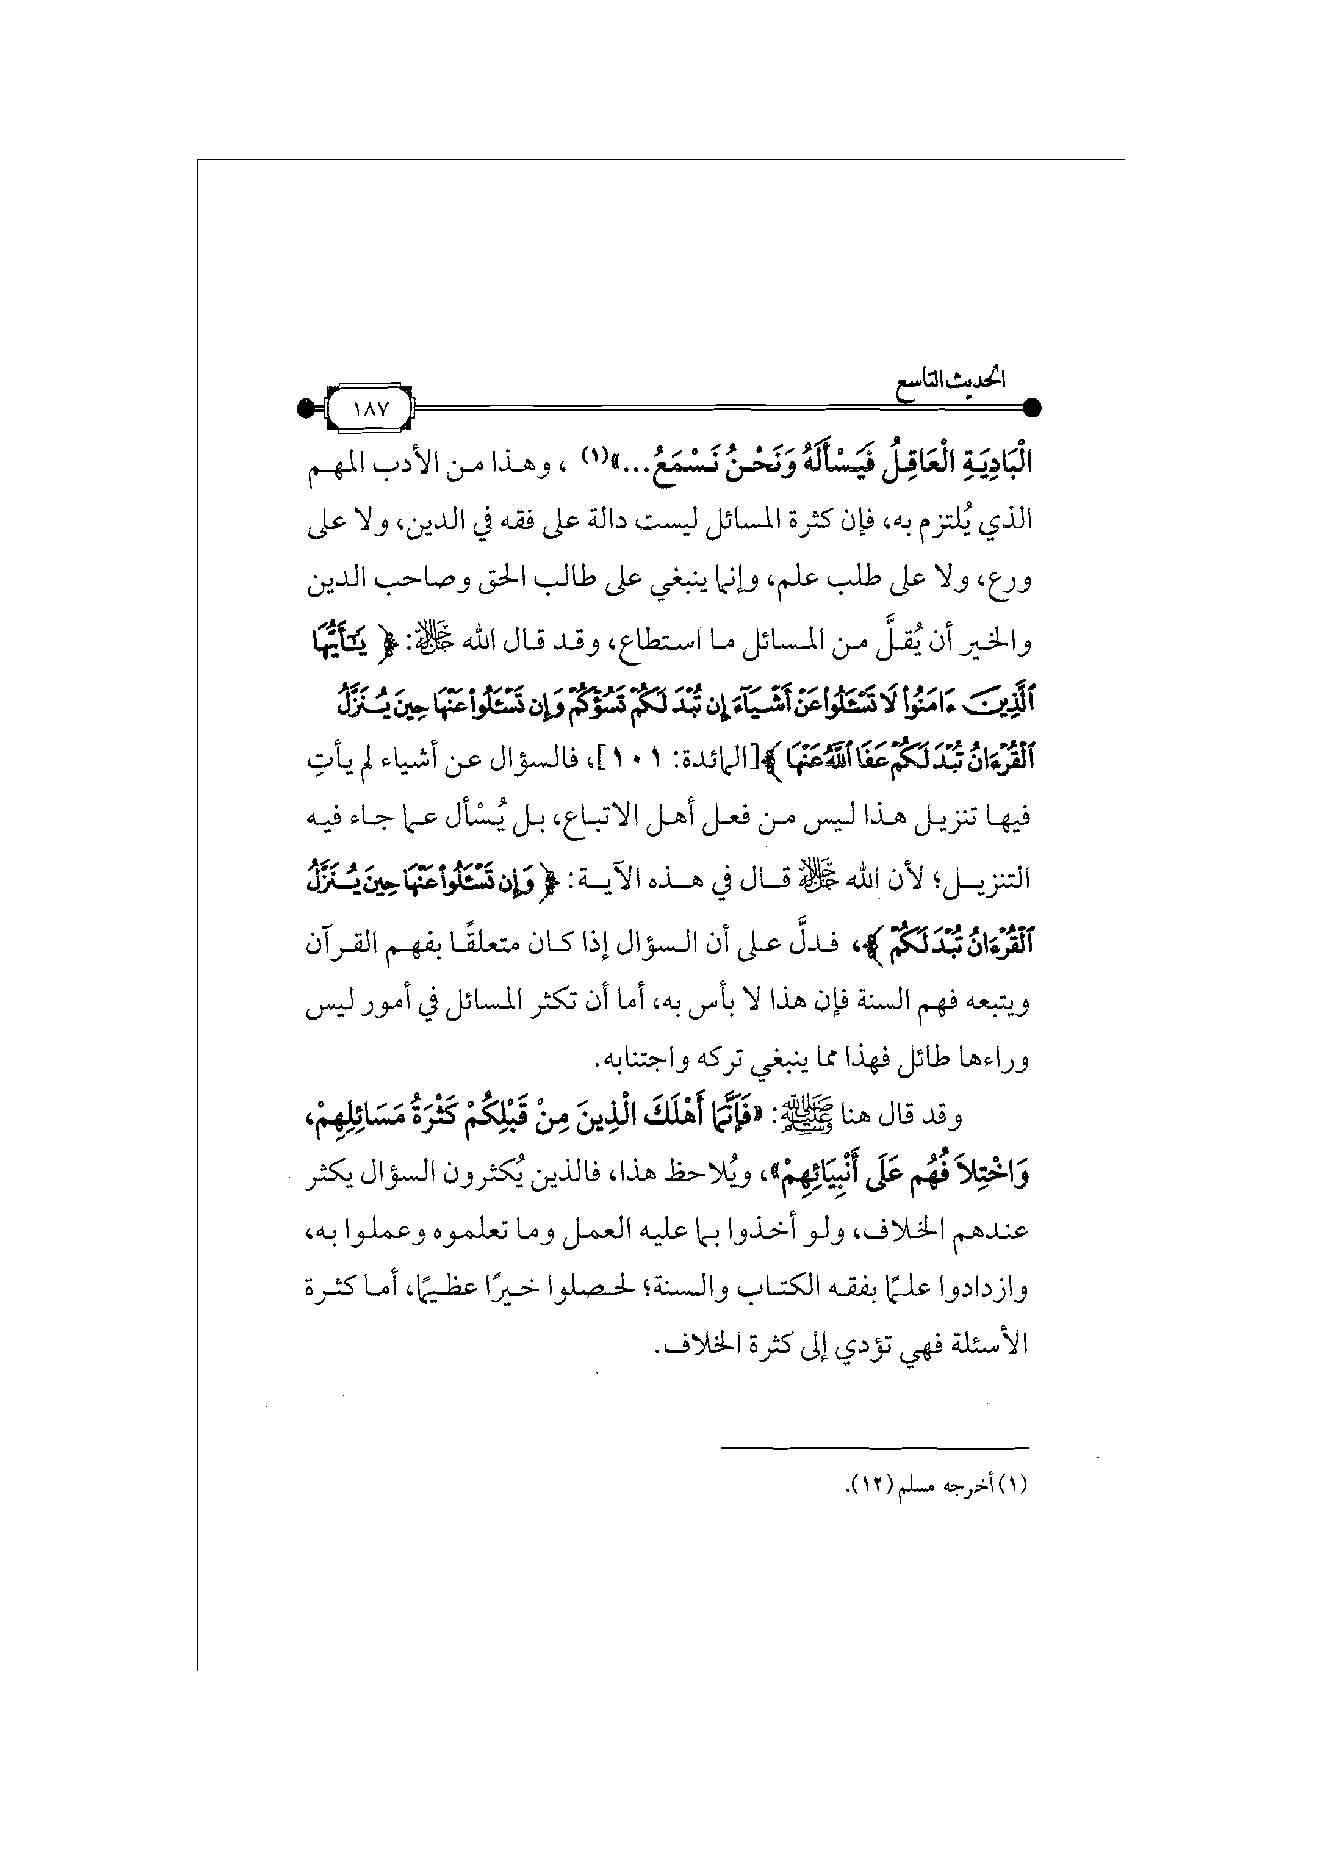 الحديث التاسع
١٨٧
الْبَادِيَةِ الْعَاقِلُ فَيَسْأَلَهُ وَنَحْنُ نَسْمَعُ...»(١) ، وهذا من الأدب المهم
الذي يُلتزم به، فإن كثرة المسائل ليست دالة على فقه في الدين، ولا على
ورع، ولا على طلب علم، وإنما ينبغي على طالب الحق وصاحب الدين
والخير أن يُقلَّ من المسائل ما استطاع، وقد قال الله ﷻ: ﴿ يَٰٓأَيُّهَا
ٱلَّذِينَ ءَامَنُوا۟ لَا تَسْـَٔلُوا۟ عَنْ أَشْيَآءَ إِن تُبْدَ لَكُمْ تَسُؤْكُمْ وَإِن تَسْـَٔلُوا۟ عَنْهَا حِينَ يُنَزَّلُ
ٱلْقُرْءَانُ تُبْدَ لَكُمْ عَفَا ٱللَّهُ عَنْهَا ﴾[المائدة: ١٠١]، فالسؤال عن أشياء لم يأتِ
فيها تنزيل هذا ليس من فعل أهل الاتباع، بل يُسْأل عما جاء فيه
التنزيل؛ لأن الله ﷻ قال في هذه الآية: ﴿ وَإِن تَسْـَٔلُوا۟ عَنْهَا حِينَ يُنَزَّلُ
ٱلْقُرْءَانُ تُبْدَ لَكُمْ ﴾، فدلَّ على أن السؤال إذا كان متعلقًا بفهم القرآن
ويتبعه فهم السنة فإن هذا لا بأس به، أما أن تكثر المسائل في أمور ليس
وراءها طائل فهذا مما ينبغي تركه واجتنابه.
وقد قال هنا ﷺ: «فَإِنَّمَا أَهْلَكَ الَّذِينَ مِنْ قَبْلِكُمْ كَثْرَةُ مَسَائِلِهِمْ،
وَاخْتِلاَفُهُم عَلَى أَنْبِيَائِهِمْ»، ويُلاحظ هذا، فالذين يُكثرون السؤال يكثر
عندهم الخلاف، ولو أخذوا بما عليه العمل وما تعلموه وعملوا به،
وازدادوا علمًا بفقه الكتاب والسنة؛ لحصلوا خيرًا عظيمًا، أما كثرة
الأسئلة فهي تؤدي إلى كثرة الخلاف.
(١) أخرجه مسلم (١٢).